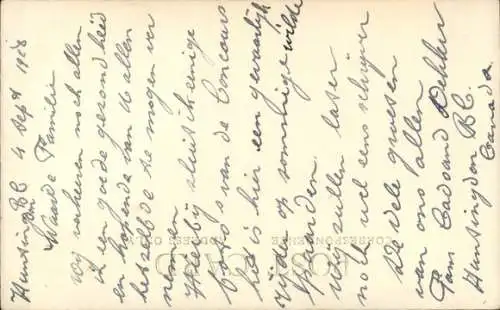 Huntingdon BC 4 Sept 1958
Waarde Familie
Wij verkeeren noch allen
in een goede gezondheid
en hopende van U allen
hetzelfde te mogen ver
nemen
Hierbij sluit ik eenige
foto's van de Concours
het is hier een gevaarlijk
rijden op sommige wilde
paarden.
wij zullen later
nog wel eens schrijven
de vele groeten
van ons allen
Fam Dekker
Huntingdon B.C.
Canada
CORRESPONDENCE
ADDRESS ONLY
POST CARD